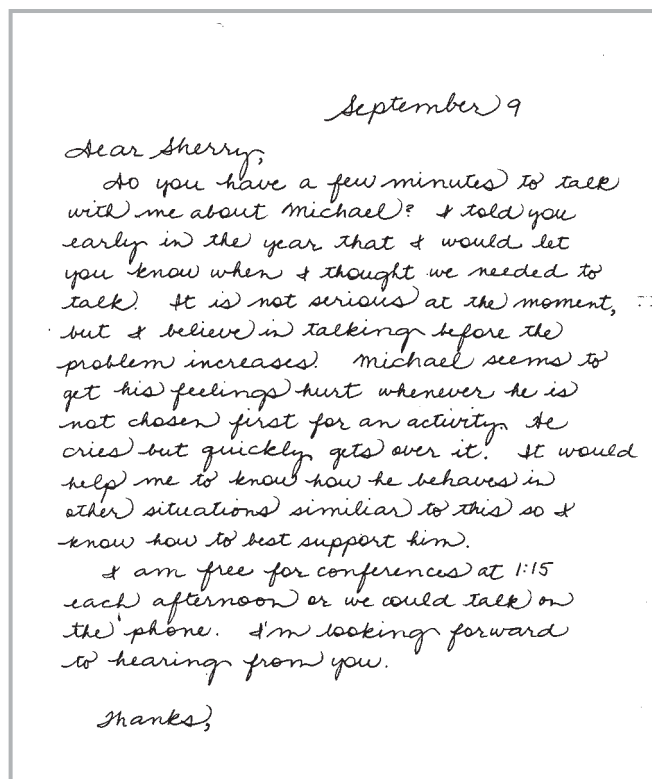 September 9
Dear Sherry,
Do you have a few minutes to talk
with me about Michael? I told you
early in the year that I would let
you know when I thought we needed to
talk. It is not serious at the moment,
but I believe in talking before the
problem increases. Michael seems to
get his feelings hurt whenever he is
not chosen first for an activity. He
cries but quickly gets over it. It would
help me to know how he behaves in
other situations similiar to this so I
know how to best support him.
I am free for conferences at 1:15
each afternoon or we could talk on
the phone. I'm looking forward
to hearing from you.
Thanks,